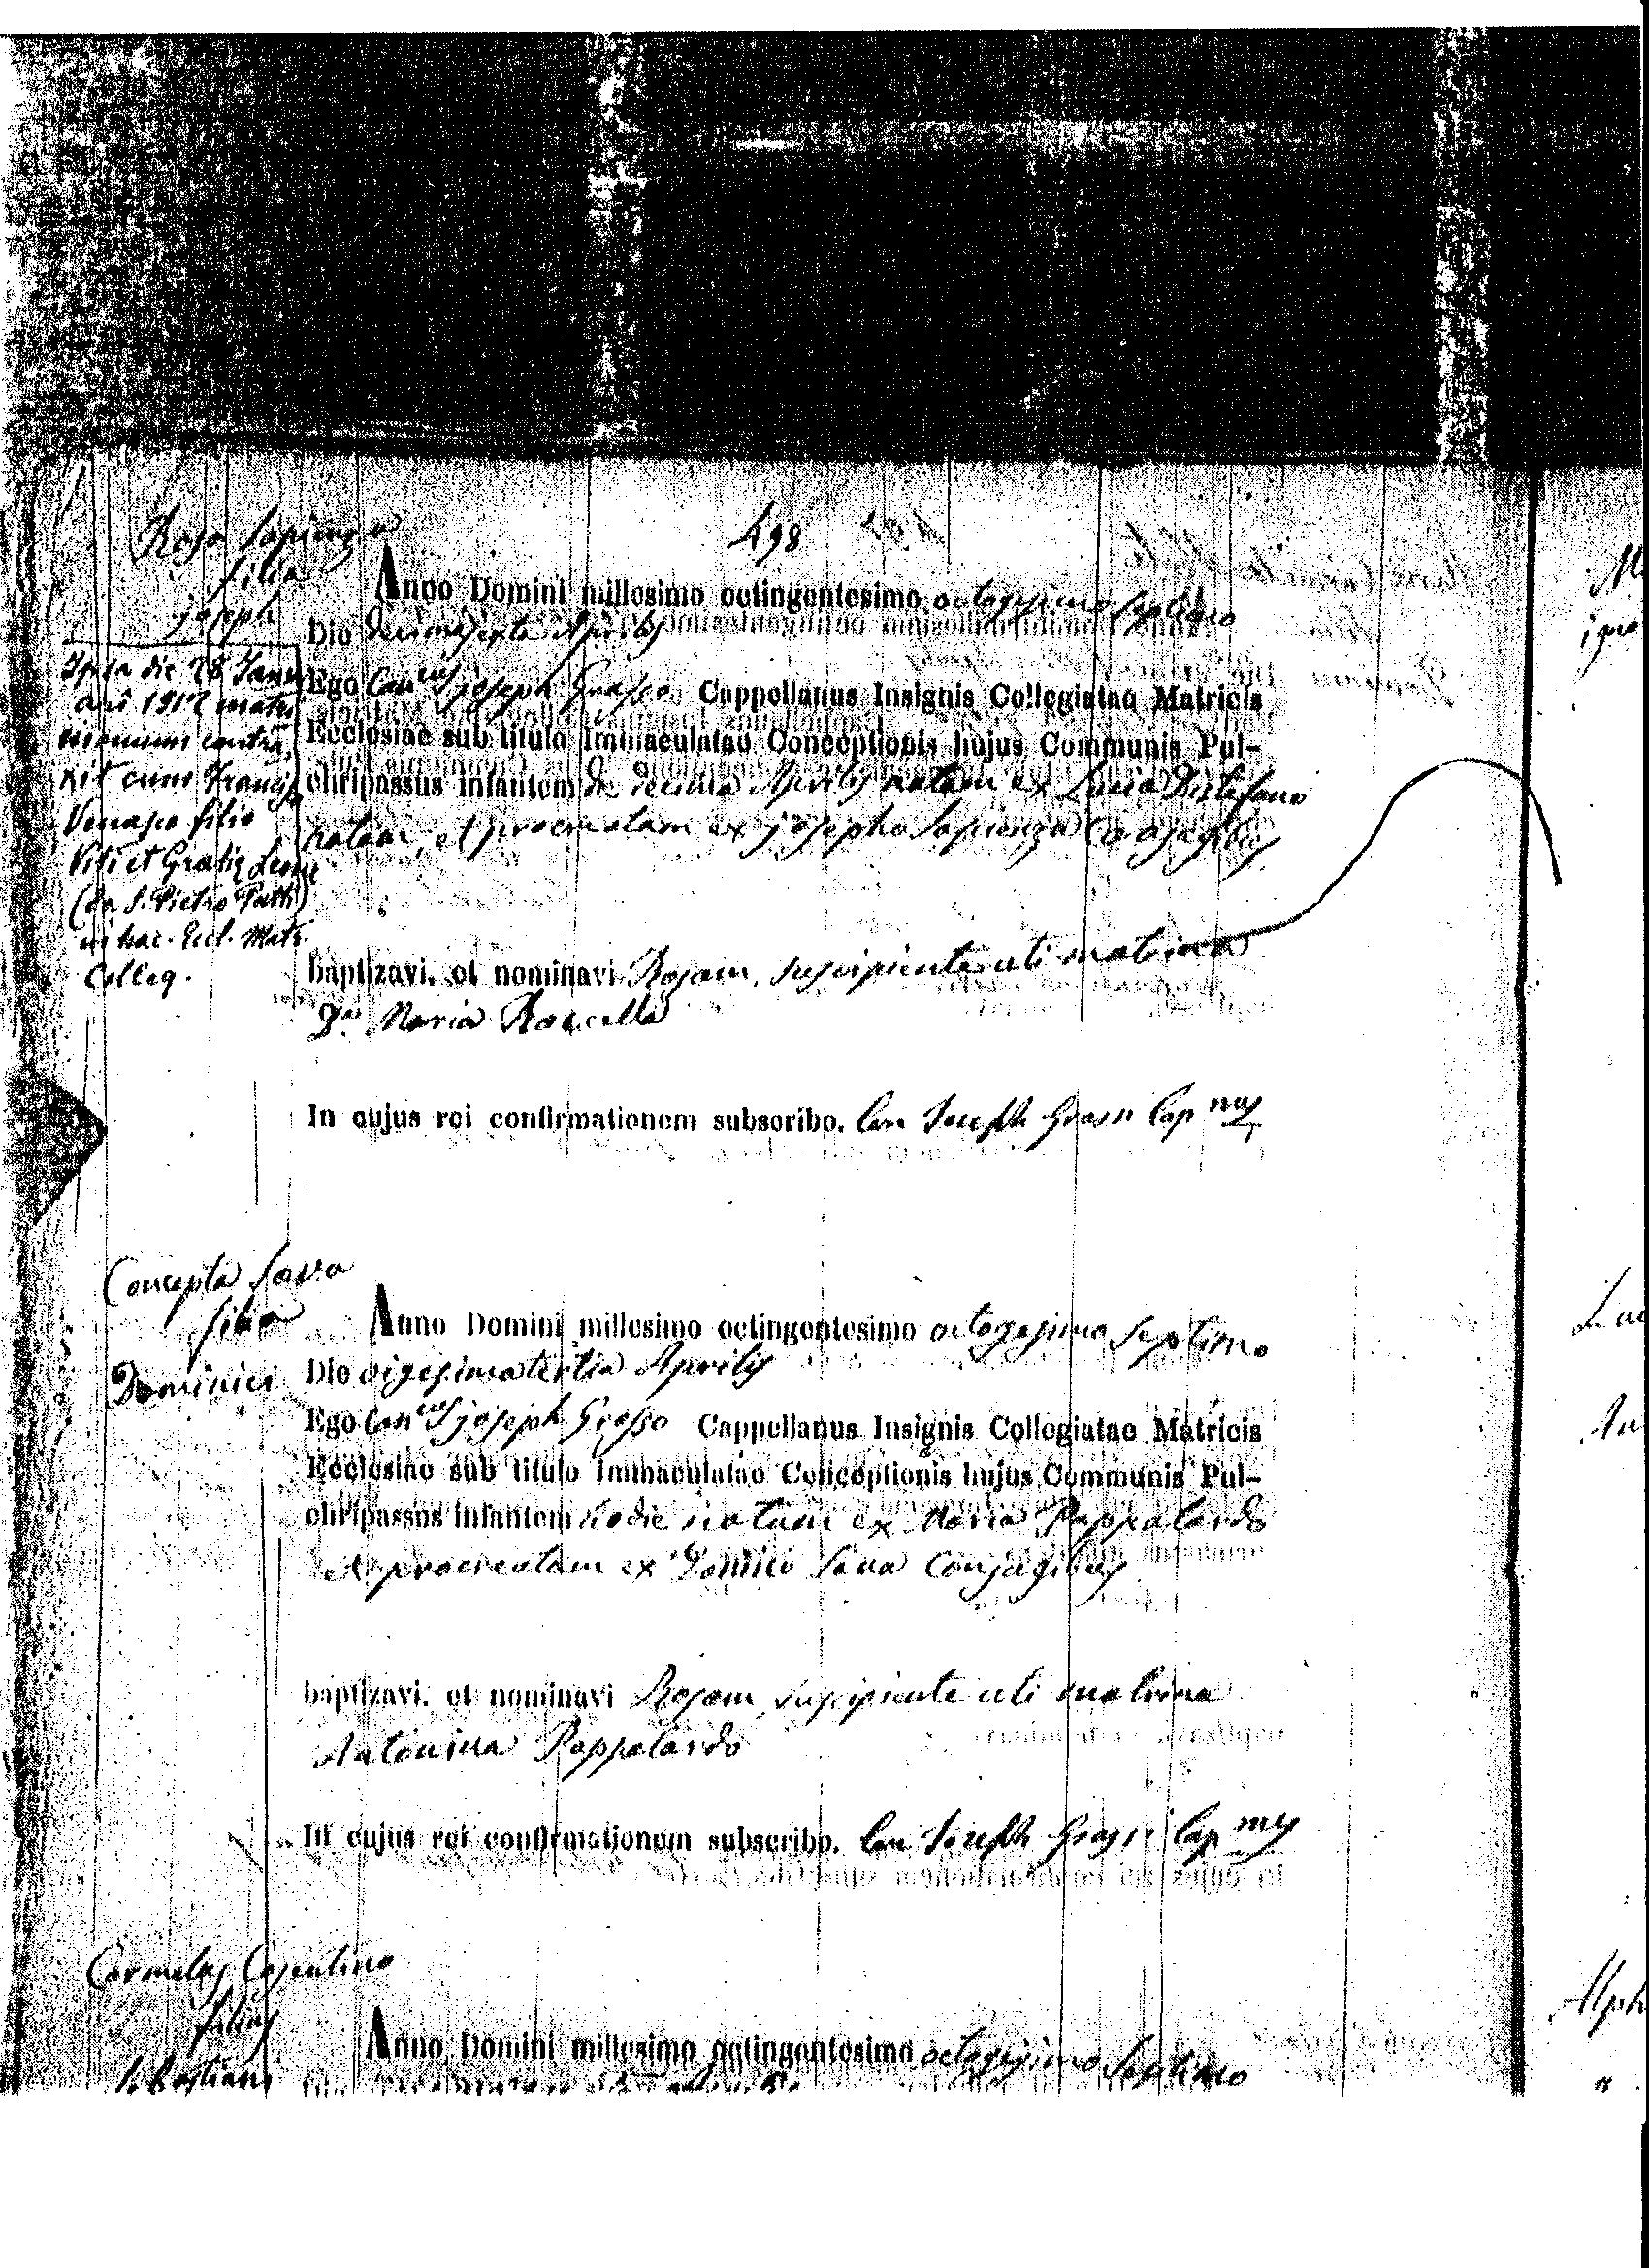 498
Rosa Sapienza
filia
joseph
Anno Domini millesimo octingentesimo octogesimo septimo
Die decimasexta Aprilis
Ego Can.cus joseph Grasso Cappellanus Insignis Collegiatae Matricis
Ecclesiae sub titulo Immaculatae Conceptionis hujus Communis Pul-
chripassus infantem die decima Aprilis natam ex Lucia Distefano
natam, et procreatam ex josepho Sapienza Conjugibus
baptizavi, et nominavi Rosam, suscipiente uti matrina
D.a Maria
In cujus rei confirmationem subscribo. Can Joseph Grasso Cap.nus
Ipsa die 28 Janu
arî 1917 matri
monium contra
xit cum Francisco
filio
Viti et Gratię Leone
(da S. Pietro Patti)
in hac. Eccl. Matr.
Colleg.
Concepta Sava
filia
Dominici
Anno Domini millesimo octingentesimo octogesimo septimo
Die vigesimatertia Aprilis
Ego Can.cus joseph Grasso Cappellanus Insignis Collegiatae Matricis
Ecclesiae sub titulo Immaculatae Conceptionis hujus Communis Pul-
chripassus infantem hodie natam ex Maria Pappalardo
et procreatam ex Domico Sava Conjugibus
baptizavi, et nominavi Rosam suscipiente uti matrina
Antonina Pappalardo
In cujus rei confirmationem subscribo. Can Joseph Grasso Cap.nus
Carmelus Cosentino
filius
Sebastiani
Anno Domini millesimo octingentesimo octogesimo septimo